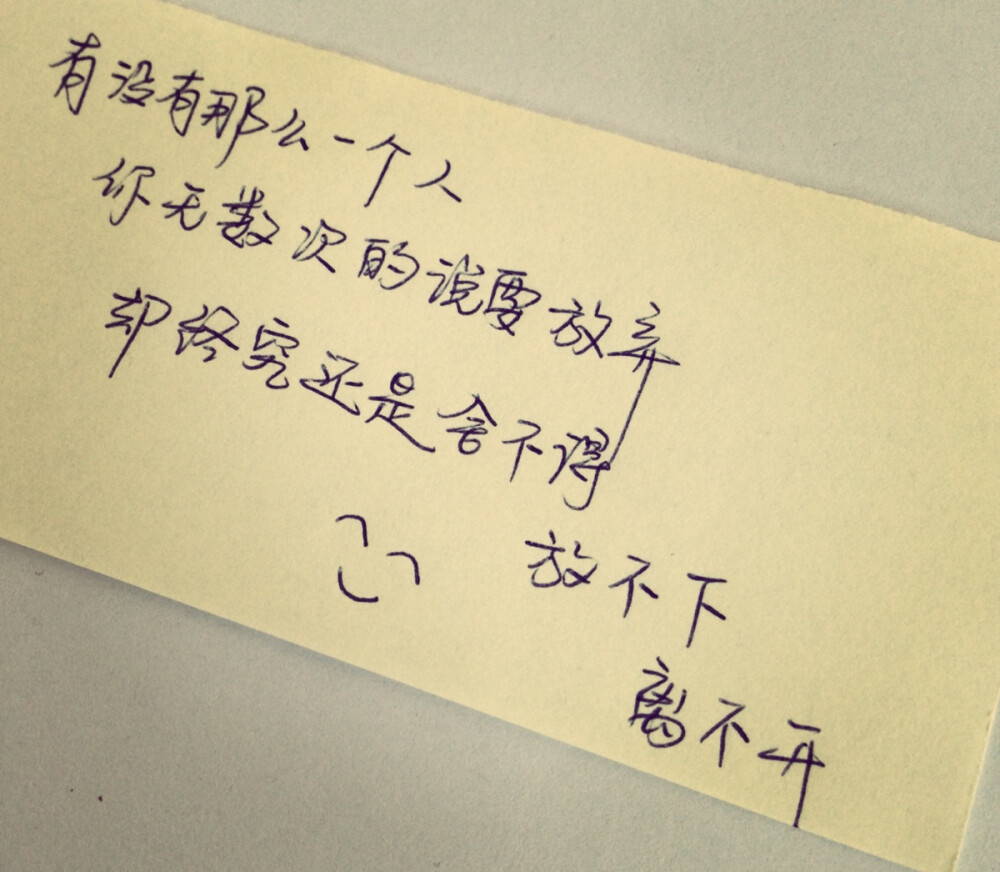 有没有那么一个人
你无数次的说要放弃
却终究还是舍不得
放不下
离不开